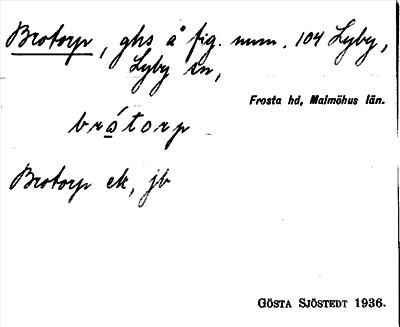 Brotorp, ghs å fig. num. 104 Lyby,
Lyby sn,
Frosta hd, Malmöhus län.
brótorp
Brotorp ek, jb
GÖSTA SJÖSTEDT 1936.